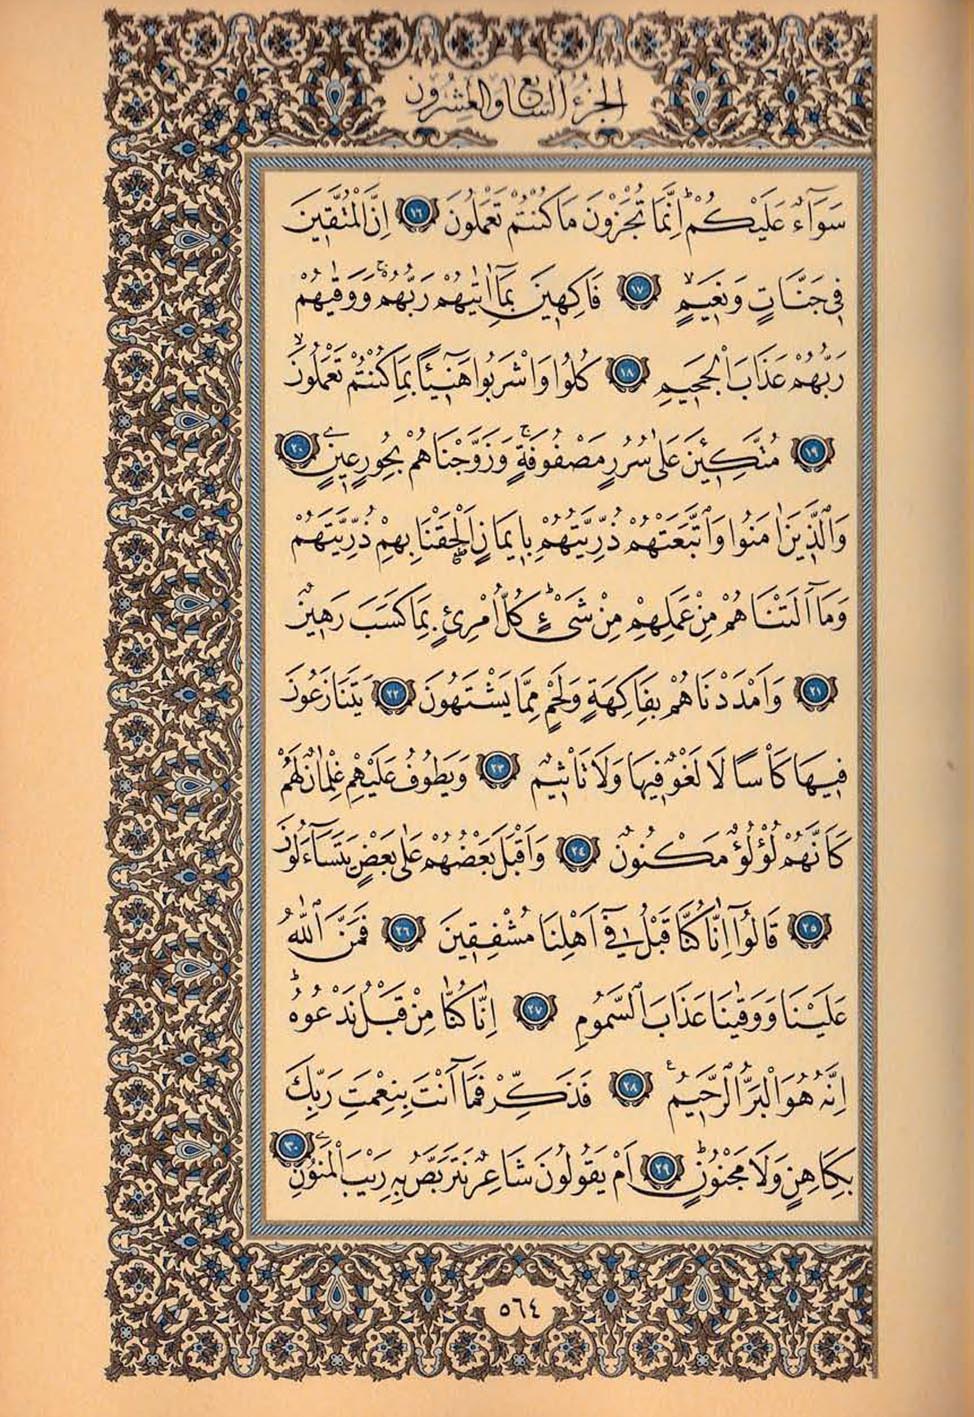 الجزء السابع والعشرون
سَوَآءٌ عَلَيْكُمْۜ اِنَّمَا تُجْزَوْنَ مَا كُنْتُمْ تَعْمَلُونَ ١٦ اِنَّ الْمُتَّقِينَ
فِي جَنَّاتٍ وَنَعِيمٍۙ ١٧ فَاكِهِينَ بِمَآ اٰتٰيهُمْ رَبُّهُمْۚ وَوَقٰيهُمْ
رَبُّهُمْ عَذَابَ الْجَحِيمِ ١٨ كُلُوا وَاشْرَبُوا هَنِٓيـًٔا بِمَا كُنْتُمْ تَعْمَلُونَۙ
١٩ مُتَّكِـِٔينَ عَلٰى سُرُرٍ مَصْفُوفَةٍۚ وَزَوَّجْنَاهُمْ بِحُورٍ عِينٍ ٢٠
وَالَّذِينَ اٰمَنُوا وَاتَّبَعَتْهُمْ ذُرِّيَّتُهُمْ بِاِيمَانٍ اَلْحَقْنَا بِهِمْ ذُرِّيَّتَهُمْ
وَمَآ اَلَتْنَاهُمْ مِنْ عَمَلِهِمْ مِنْ شَيْءٍۜ كُلُّ امْرِئٍ بِمَا كَسَبَ رَهِينٌ
٢١ وَاَمْدَدْنَاهُمْ بِفَاكِهَةٍ وَلَحْمٍ مِمَّا يَشْتَهُونَ ٢٢ يَتَنَازَعُونَ
فِيهَا كَاْسًا لَا لَغْوٌ فِيهَا وَلَا تَاْثِيمٌ ٢٣ وَيَطُوفُ عَلَيْهِمْ غِلْمَانٌ لَهُمْ
كَاَنَّهُمْ لُؤْلُؤٌ مَكْنُونٌ ٢٤ وَاَقْبَلَ بَعْضُهُمْ عَلٰى بَعْضٍ يَتَسَآءَلُونَ
٢٥ قَالُٓوا اِنَّا كُنَّا قَبْلُ فِٓي اَهْلِنَا مُشْفِقِينَ ٢٦ فَمَنَّ اللّٰهُ
عَلَيْنَا وَوَقٰينَا عَذَابَ السَّمُومِ ٢٧ اِنَّا كُنَّا مِنْ قَبْلُ نَدْعُوهُۜ
اِنَّهُ هُوَ الْبَرُّ الرَّحِيمُ ٢٨ فَذَكِّرْ فَمَآ اَنْتَ بِنِعْمَتِ رَبِّكَ
بِكَاهِنٍ وَلَا مَجْنُونٍۜ ٢٩ اَمْ يَقُولُونَ شَاعِرٌ نَتَرَبَّصُ بِهِ رَيْبَ الْمَنُونِ ٣٠
٥٦٤